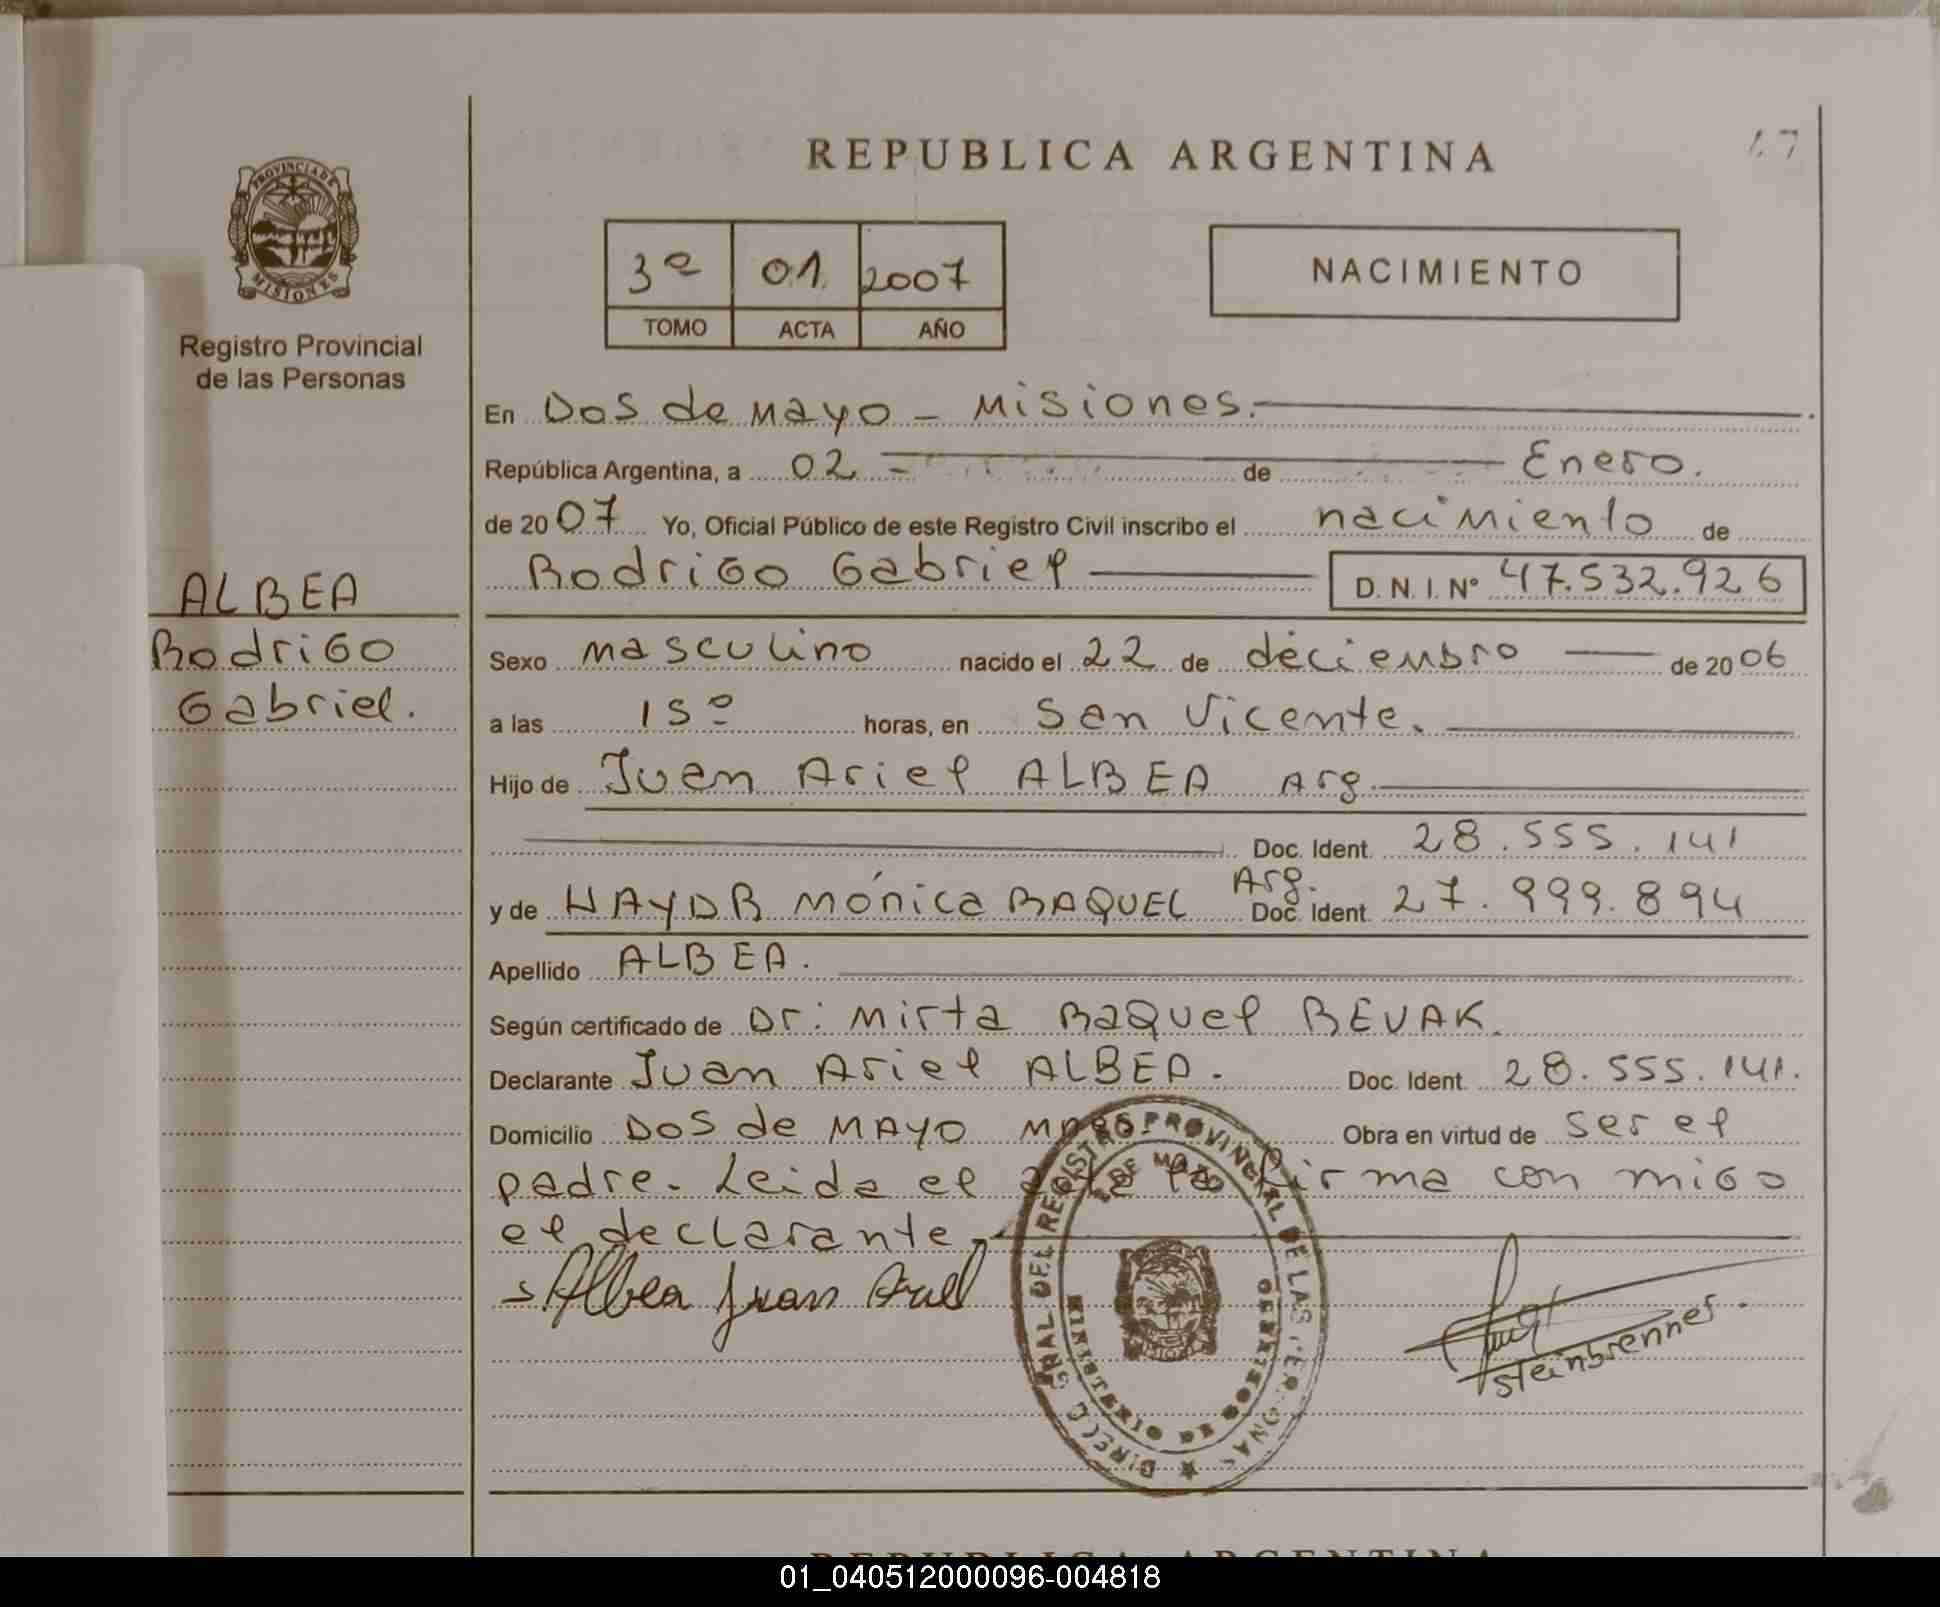 REPUBLICA ARGENTINA
PROVINCIA DE
MISIONES
Registro Provincial
de las Personas
3º 01 2007
TOMO ACTA AÑO
NACIMIENTO
En Dos de Mayo - Misiones.
República Argentina, a 02 - de Enero.
de 20 07 Yo, Oficial Público de este Registro Civil inscribo el nacimiento de
Rodrigo Gabriel D. N. I. Nº 47.532.926
ALBEA
Rodrigo
Gabriel.
Sexo masculino nacido el 22 de deciembro de 20 06
a las 15º horas, en San Vicente.
Hijo de Juan Ariel ALBEA Arg.
Doc. Ident. 28.555.141
y de HAYDR Mónica RAQUEL Arg. Doc. Ident. 27.999.894
Apellido ALBEA.
Según certificado de Dr: Mirta Raquel BEVAK.
Declarante Juan Ariel ALBEA. Doc. Ident. 28.555.141.
Domicilio Dos de MAYO Mnes. Obra en virtud de ser el
padre. Leida el acta la firma con migo
el declarante.
Albea Juan Ariel
DIRECC GRAL DEL REGISTRO PROVINCIAL DE LAS PERSONAS
2 DE MAYO
MINISTERIO DE GOBIERNO
Steinbrenner.
REPUBLICA ARGENTINA
01_040512000096-004818